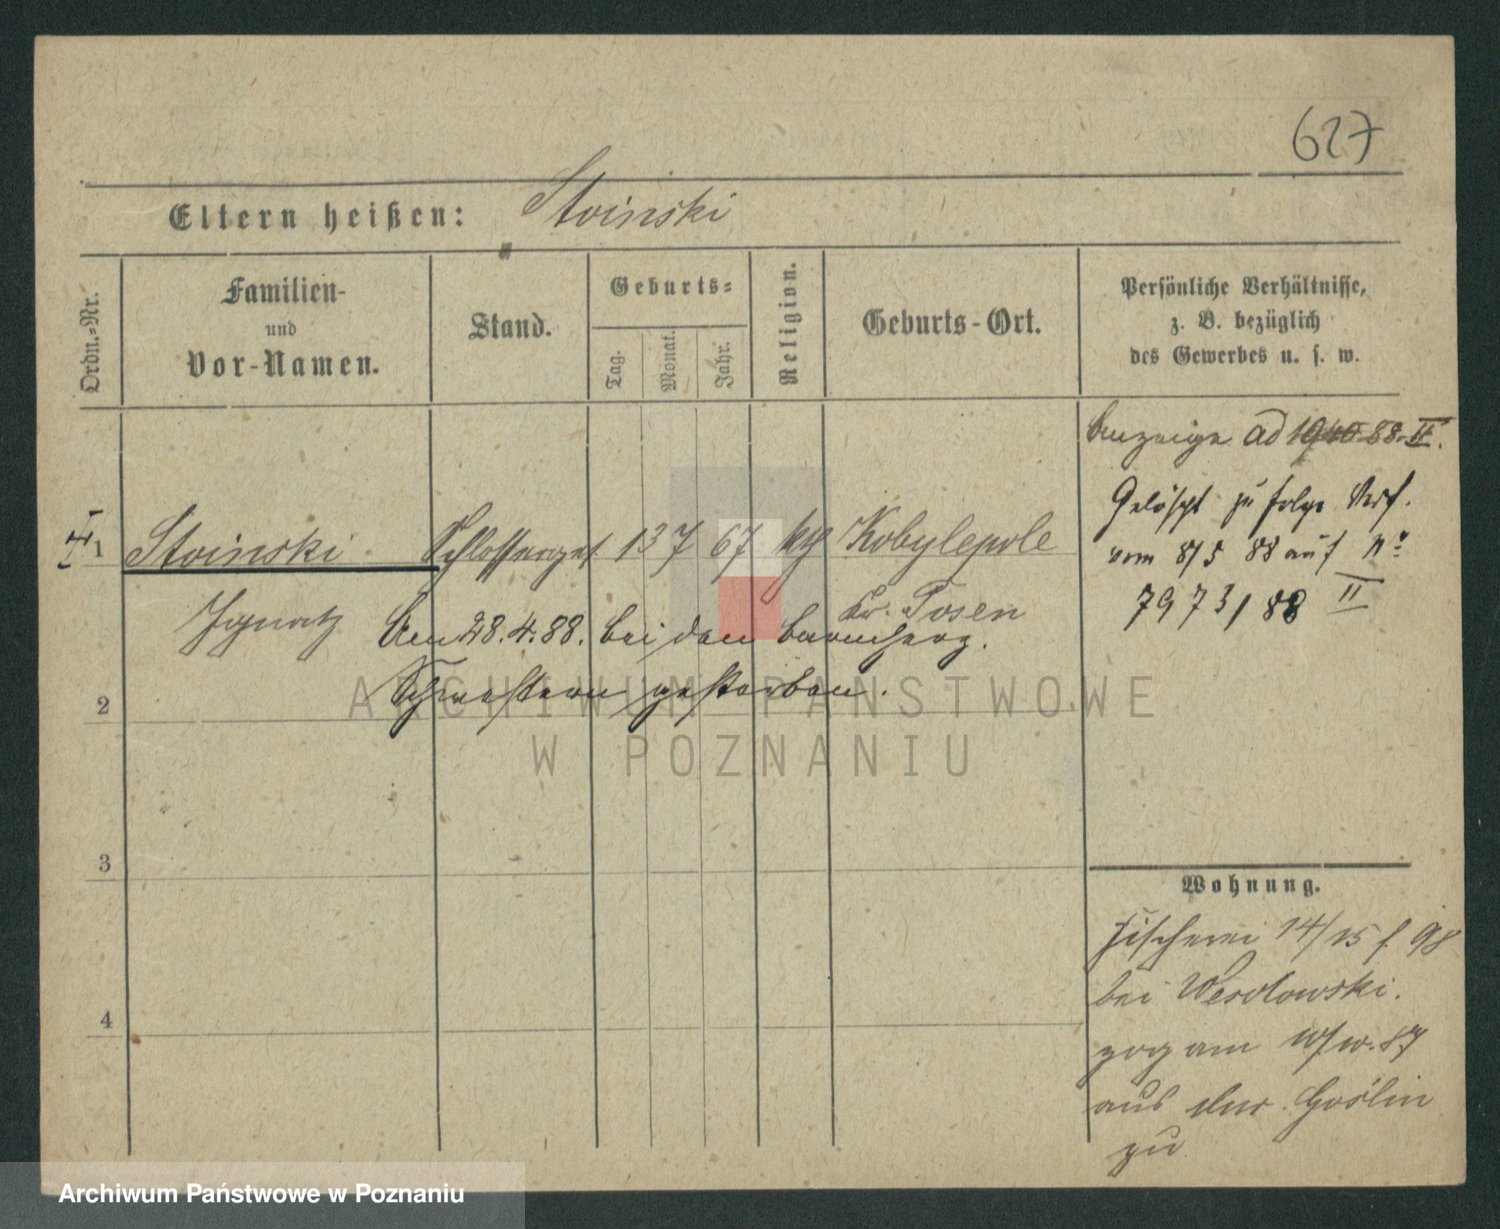 627
Eltern heißen: Stoinski
Ordn.-Nr.
Familien-
und
Vor-Namen.
Stand.
Geburts-
Tag.
Monat.
Jahr.
Religion.
Geburts-Ort.
Persönliche Verhältnisse,
z. B. bezüglich
des Gewerbes u. s. w.
ad 1940 88 II.
Gelöscht zu folge Verf.
vom 8/5 88 auf No
7973/88 II
1 Stoinski Schlosserges 13 7 67 kg Kobylepole
Ignatz Kr. Posen
Am 28.4.88. bei den barmherz.
Schwestern gestorben.
2
3
4
Wohnung.
Fischerei 14/15
bei Wesolowski.
zog am 87
aus Goślin
zu
ARCHIWUM PAŃSTWOWE
W POZNANIU
Archiwum Państwowe w Poznaniu